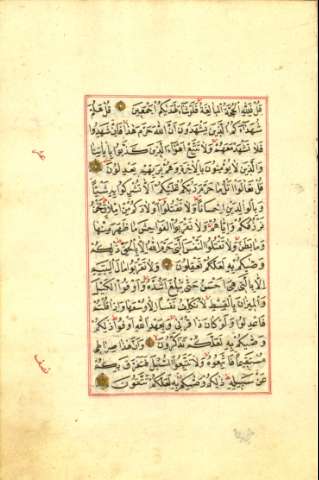 قُلْ فَلِلّٰهِ الْحُجَّةُ الْبَالِغَةُ فَلَوْ شَاءَ لَهَدٰيكُمْ اَجْمَعِينَ قُلْ هَلُمَّ
شُهَدَاءَكُمُ الَّذِينَ يَشْهَدُونَ اَنَّ اللّٰهَ حَرَّمَ هٰذَا فَاِنْ شَهِدُوا
فَلَا تَشْهَدْ مَعَهُمْ وَلَا تَتَّبِعْ اَهْوَاءَ الَّذِينَ كَذَّبُوا بِاٰيَاتِنَا
وَالَّذِينَ لَا يُؤْمِنُونَ بِالْاٰخِرَةِ وَهُمْ بِرَبِّهِمْ يَعْدِلُونَ
قُلْ تَعَالَوْا اَتْلُ مَا حَرَّمَ رَبُّكُمْ عَلَيْكُمْ اَلَّا تُشْرِكُوا بِهِ شَيْئًا
وَبِالْوَالِدَيْنِ اِحْسَانًا وَلَا تَقْتُلُوا اَوْلَادَكُمْ مِنْ اِمْلَاقٍ نَحْنُ
نَرْزُقُكُمْ وَاِيَّاهُمْ وَلَا تَقْرَبُوا الْفَوَاحِشَ مَا ظَهَرَ مِنْهَا
وَمَا بَطَنَ وَلَا تَقْتُلُوا النَّفْسَ الَّتِي حَرَّمَ اللّٰهُ اِلَّا بِالْحَقِّ ذٰلِكُمْ
وَصّٰيكُمْ بِهِ لَعَلَّكُمْ تَعْقِلُونَ وَلَا تَقْرَبُوا مَالَ الْيَتِيمِ
اِلَّا بِالَّتِي هِيَ اَحْسَنُ حَتّٰى يَبْلُغَ اَشُدَّهُ وَاَوْفُوا الْكَيْلَ
وَالْمِيزَانَ بِالْقِسْطِ لَا نُكَلِّفُ نَفْسًا اِلَّا وُسْعَهَا وَاِذَا قُلْتُمْ
فَاعْدِلُوا وَلَوْ كَانَ ذَا قُرْبٰى وَبِعَهْدِ اللّٰهِ اَوْفُوا ذٰلِكُمْ
وَصّٰيكُمْ بِهِ لَعَلَّكُمْ تَذَكَّرُونَ وَاَنَّ هٰذَا صِرَاطِي
مُسْتَقِيمًا فَاتَّبِعُوهُ وَلَا تَتَّبِعُوا السُّبُلَ فَتَفَرَّقَ بِكُمْ
عَنْ سَبِيلِهِ ذٰلِكُمْ وَصّٰيكُمْ بِهِ لَعَلَّكُمْ تَتَّقُونَ
نصف